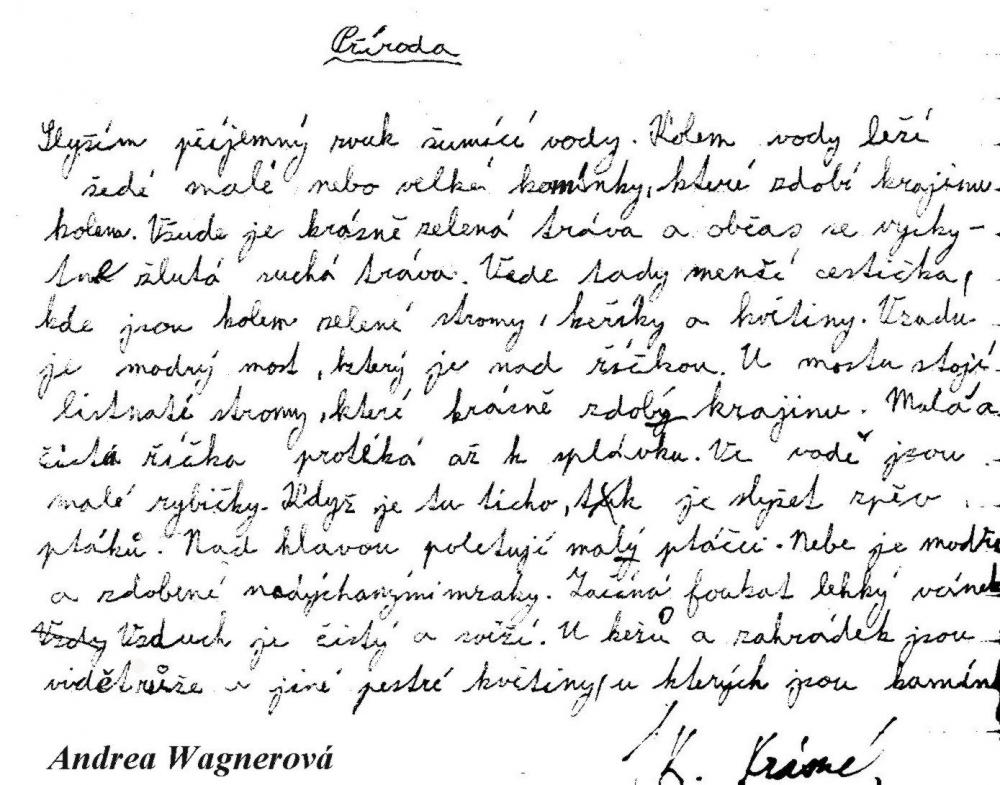 Příroda
Slyším příjemný zvuk šumící vody. Kolem vody leží
šedé malé nebo velké kamínky, které zdobí krajinu
kolem. Všude je krásně zelená tráva a občas se vycky-
tne žlutá suchá tráva. Vede tady menší cestička,
kde jsou kolem zelené stromy, keříky a květiny. Vzadu
je modrý most, který je nad říčkou. U mostu stojí
listnaté stromy, které krásně zdobý krajinu. Malá a
čistá říčka protéká až k splávku. Ve vodě jsou
malé rybičky. Když je tu ticho, tak je slyšet zpěv
ptáků. Nad hlavou poletují malý ptáčci. Nebe je modře
a zdobené nadýchanými mraky. Začíná foukat lehký vánek
Vzduch je čistý a svěží. U keřů a zahrádek jsou
vidět růže a jiné pestré květiny, u kterých jsou kamín
K. Krásné
Andrea Wagnerová